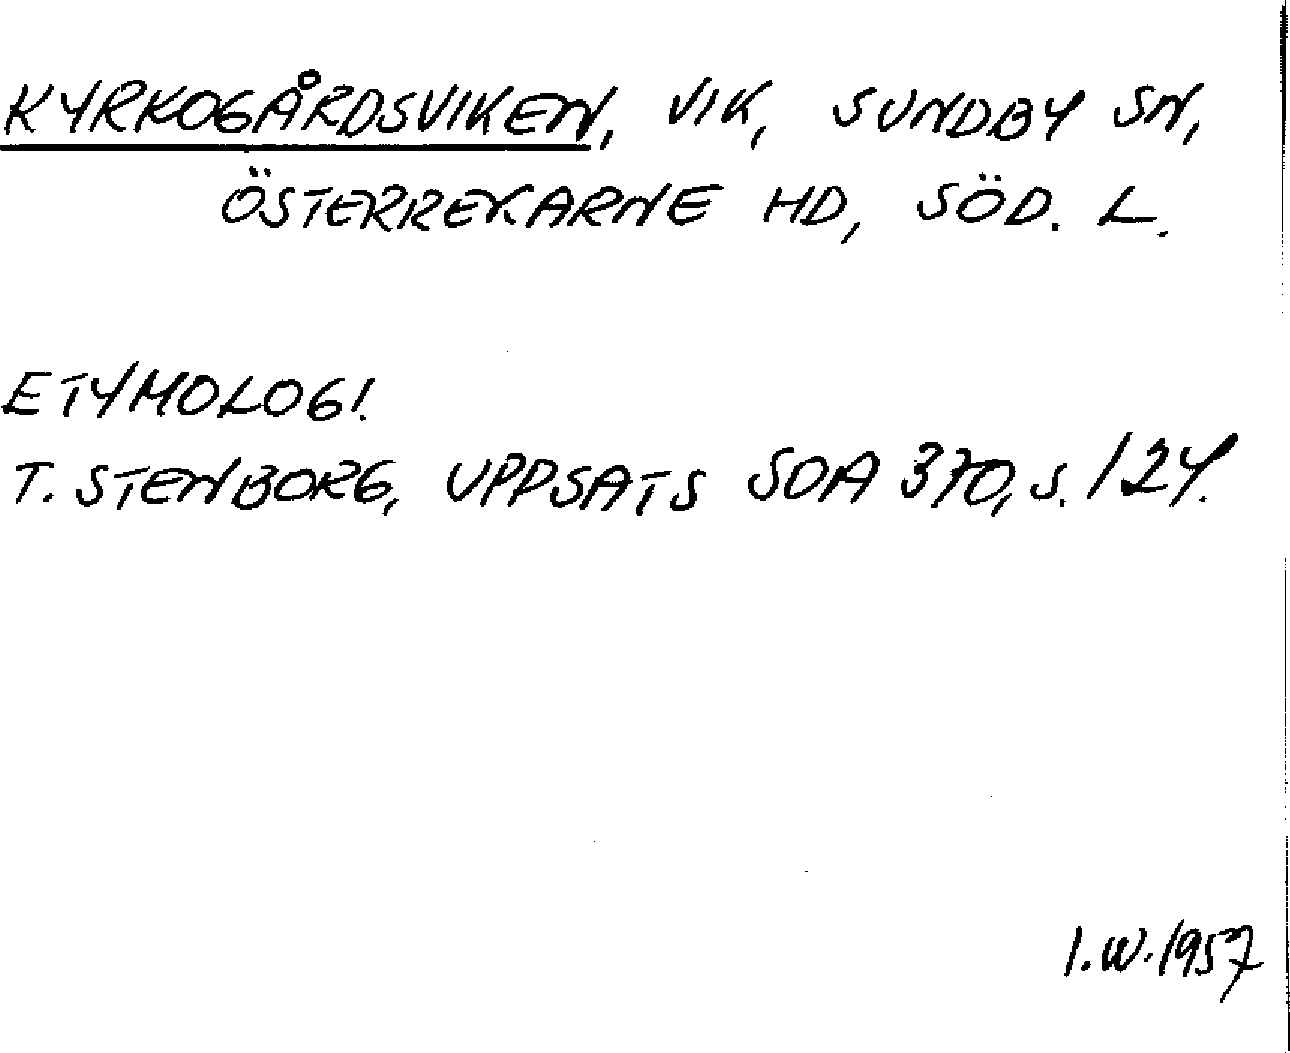 KYRKOGÅRDSVIKEN, VIK, SUNDBY SN,
ÖSTERREKARNE HD, SÖD. L.
ETYMOLOGI.
T. STENBORG, UPPSATS SOA 370, S. 124.
I.W. 1957